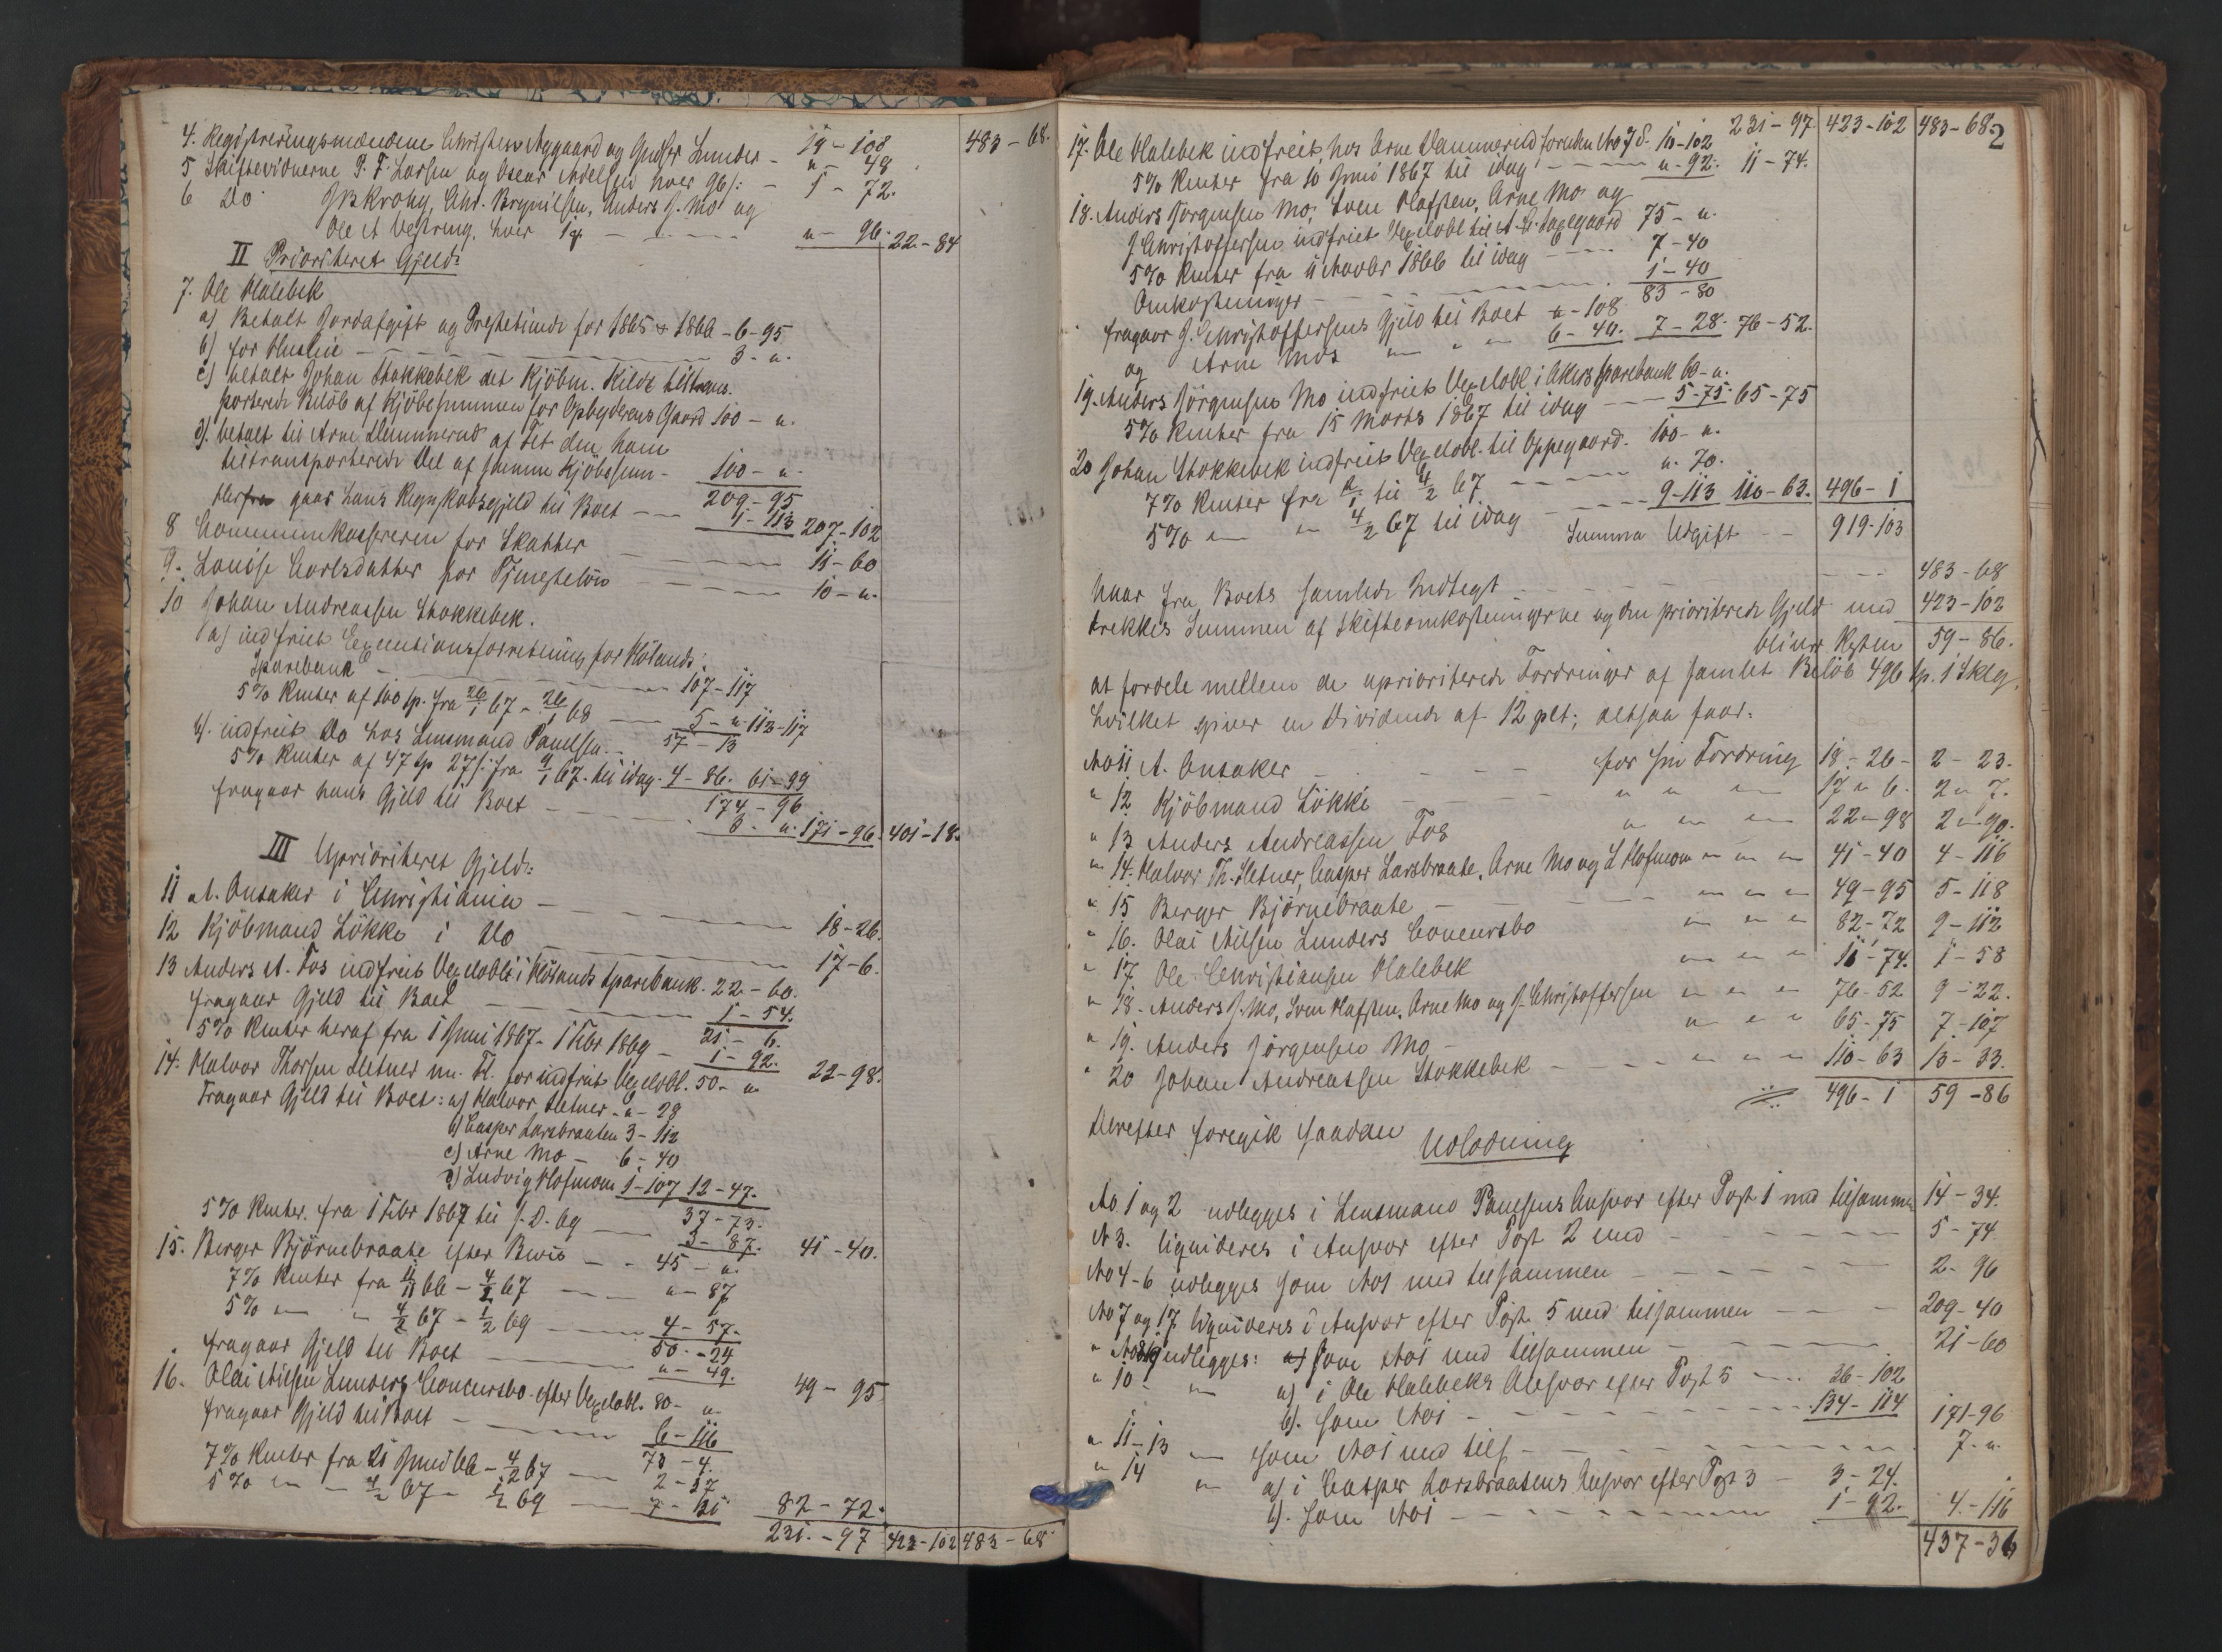 19 - 108 483 - 68.
4. Registreringsmændene Christen Nygaard og Gudser Lunder - u - 48
5 Skiftevidnerne P. F. Larsen og Oscar Adelsten hver 96 s: - 1 - 72.
6 Do J B Krohg, Chr. Brynilsen, Anders J. Mo og
Ole A Vestreng, hver 1 - u - 96. 22 - 84
II Prioriteret Gjeld:
7. Ole Halebek
a) Betalt Jordafgift og Prestetiende for 1865 & 1866 - 6 - 95
b) for Husleie - 3 - u.
c) betalt Johan Stokkebek det Kjöbm. Kilde tiltrans-
porterede Belöb af Kjöbesummen for Opbyderens Gaard 100 - u.
d). betalt til Arne Dammerud af Fet den ham
tiltransporterede Del af samme Kjöbesum - 100 - u.
209 - 95
Herfra gaar hans Regnskabsgjeld til Boet - 1 - 113 207 - 102
8 Communekassereren for Skatter - 11 - 60
9. Louise Carlsdatter for Tjenestelön - 10 - u.
10 Johan Andreassen Stokkebek.
a) indfriet Executionsforretning for Hölands
Sparebank - 107 - 117
5% Renter af 100 sp. fra 26/1 67 - 26/1 68 - 5 - u. 112 - 117
b). indfriet Do hos Lensmand Paulsen - 57 - 13
5% Renter af 47 sp 27 s. fra 9/1 67. til idag. 4 - 86. 61 - 99
174 - 96
fragaar hans Gjeld til Boet - 3 - u. 171 - 96. 401 - 18.
III Uprioriteret Gjeld:
11 A. Onsaker i Christiania - 18 - 26.
12 Kjöbmand Lökke i Do - 17 - 6.
13 Anders A. Fos indfriet Vexelobl. i Hölands Sparebank. 22 - 60.
fragaar Gjeld til Boet - 1 - 54.
21 - 6.
5% Renter heraf fra 1 Juni 1867 - 1 Febr 1869 - 1 - 92. 22 - 98.
14. Halvor Thorsen Sletner m. Fl. for indfriet Vexelobl. 50 - u
Fragaar Gjeld til Boet: a) Halvor Sletner - u - 28
b) Casper Larsbraaten 3 - 112
c) Arne Mo - 6 - 40
d) Ludvig Hofmoen 1 - 107 12 - 47.
37 - 73.
5% Renter. fra 1 Febr 1867 til s. D. 69 - 3 - 87. 41 - 40.
15. Berger Björnebraate efter Bevis - 45 - u.
7% Renter fra 11/11 66 - 4/2 67 - u - 87
5% - 4/2 67 - 1/2 69 - 4 - 57.
50 - 24
fragaar Gjeld til Boet - u - 49. 49 - 95.
16. Olai Nilsen Lunders Concursbo efter Vexelobl. 80 - u
fragaar Gjeld til Boet - 6 - 116
73 - 4.
7% Renter fra 21 Juni 66 - 4/2 67 - 2 - 37
5% - 4/2 67 - 1/2 69 - 82 - 72.
231 - 97 423 - 102 483 - 68
2
231 - 97. 423 - 102 483 - 68
17. Ole Halebek indfriet hos Arne Dammerud 10 - 102
5% Renter fra 10 Juni 1867 til idag - u - 92. 11 - 74.
18. Anders Jörgensen Mo, Sven Olafsen, Arne Mo og
J. Christoffersen indfriet Vexelobl. til 75 - u.
5% Renter fra 11 Novbr 1866 til idag - 7 - 40
Omkostninger - 1 - 40
83 - 80
fragaar J. Christoffersens Gjeld til Boet u - 108
og Arne Mos 6 - 40. 7 - 28. 76 - 52.
19. Anders Jörgensen Mo indfriet Vexelobl. i Akers Sparebank 60 - u.
5% Renter fra 15 Marts 1867 til idag - 5 - 75. 65 - 75
20 Johan Stokkebek indfriet Vexelobl. til Oppegaard. 100 - u.
7% Renter fra til 4/2 67 - u. 70.
5% 4/2 67 til idag - 9 - 113 110 - 63. 496 - 1
Summa Udgift - 919 - 103
Naar fra Boets samlede Indtegt - 483 - 68
trekkes Summen af Skifteomkostningerne og den prioriterede Gjeld med 423 - 102
bliver Resten 59 - 86.
at fordele mellem de uprioriterede Fordringer af samlet Belöb 496 sp. 1 Sklg.
hvilket giver en Dividende af 12 pCt; altsaa faar:
No 11 A. Onsaker - for sin Fordring 18 - 26 - 2 - 23.
" 12 Kjöbmand Lökke 17 - 6. 2 - 7.
" 13 Anders Andreassen Fos 22 - 98 2 - 90.
" 14. Halvor Th. Sletner, Casper Larsbraate, Arne Mo og L Hofmoen 41 - 40 4 - 116
" 15 Berger Björnebraate - 49 - 95 5 - 118
" 16. Olai Nilsen Lunders Concursbo 82 - 72 9 - 112
" 17 Ole Christiansen Halebek 11 - 74. 1 - 58
" 18. Anders J. Mo, Sven Olafsen, Arne Mo og J. Christoffersen 76 - 52 9 - 22.
" 19. Anders Jörgensen Mo - 65 - 75 7 - 107
" 20 Johan Andreassen Stokkebek - 110 - 63 13 - 33.
496 - 1 59 - 86
Derefter foregik saadan
Udlodning
No. 1 og 2 udlegges i Lensmand Paulsens Ansvar efter Post 1 med tilsammen 14 - 34.
N 3. liqvideres i Ansvar efter Post 2 med - 5 - 74
No 4 - 6 udlegges som No 1 med tilsammen - 2 - 96
No 7 og 17. liqvideres i Ansvar efter Post 5 med tilsammen - 209 - 40
udlegges: som No 1 med tilsammen - 21 - 60
" 10 - a) i Ole Halebeks Ansvar efter Post 5 - 36 - 102
b). som No 1 - 134 - 114 171 - 96
" 11 - 13 som No 1 med tils. - 7 - u.
" 14 a) i Casper Larsbraatens Ansvar efter Post 3 - 3 - 24.
b). som No 1 - 1 - 92. 4 - 116
437 - 36